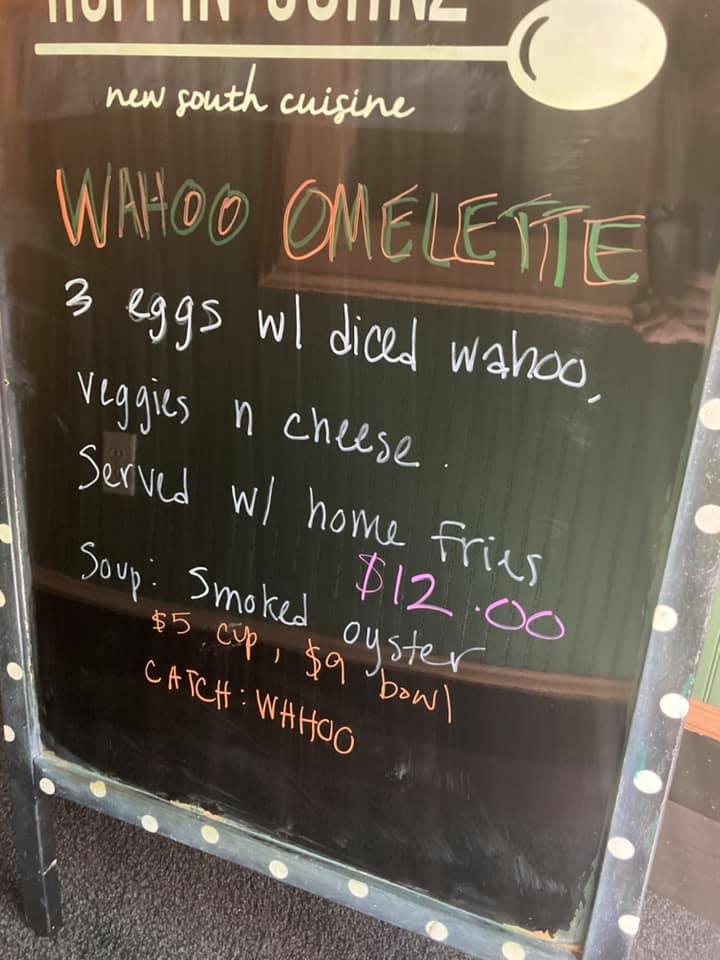 HOPPIN' JOHNZ
new south cuisine
WAHOO OMELETTE
3 eggs w/ diced wahoo,
veggies n cheese.
Served w/ home fries
$12.00
Soup: Smoked oyster
$5 cup, $9 bowl
CATCH: WAHOO